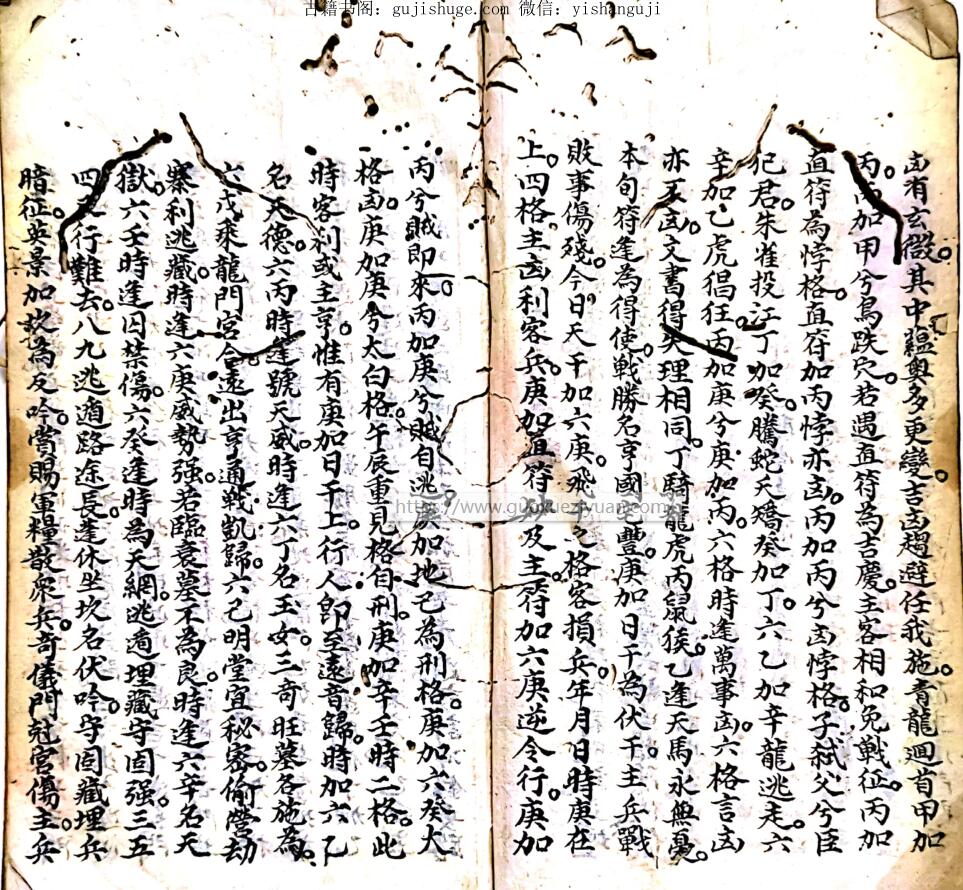 古籍书阁：gujishuge.com 微信：yishanguji
凶有玄微。其中蘊奥多更變。吉凶趨避任我施。青龍廻首甲加
丙。丙加甲兮鳥跌穴。若遇直符為吉慶。主客相和免戰征。丙加
直符為悖格。直符加丙悖亦凶。丙加丙兮凶悖格。子弑父兮臣
犯君。朱雀投江丁加癸。騰蛇夭矯癸加丁。六乙加辛龍逃走。六
辛加乙虎猖狂。丙加庚兮庚加丙。六格時逢萬事凶。六格言凶
亦不凶。文書得失理相同。丁騎龍虎丙鼠猴。乙逢天馬永無憂。
本旬符逢為得使。戰勝名亨國宅豐。庚加日干為伏干。主兵戰
敗事傷殘。今日天干加六庚。飛干之格客損兵。年月日時庚在
上。四格主凶利客兵。庚加直符及主。符加六庚逆令行。庚加
丙兮賊即來。丙加庚兮賊自逃。庚加地己為刑格。庚加六癸大
格凶。庚加庚兮太白格。午辰重見格自刑。庚加辛壬時二格。此
時客利或主亨。惟有庚加日干上。行人即至遠音歸。時加六乙
名天德。六丙時逢號天威。時逢六丁名玉女。三奇旺墓各施為。
六戊乘龍門宫合。遠出亨通戰凱歸。六己明堂宜秘密。偷營劫
寨利逃藏。時逢六庚威勢强。若臨衰墓不為良。時逢六辛名天
獄。六壬時逢囚禁傷。六癸逢時為天網。逃遁埋藏守固强。三五
四 行難去。八九逃遁路途長。蓬休坐坎名伏吟。守固藏埋兵
暗征。英景加坎為反吟。賞賜軍糧散衆兵。奇儀門尅宫傷主兵
https://www.guoxueziyuan.com